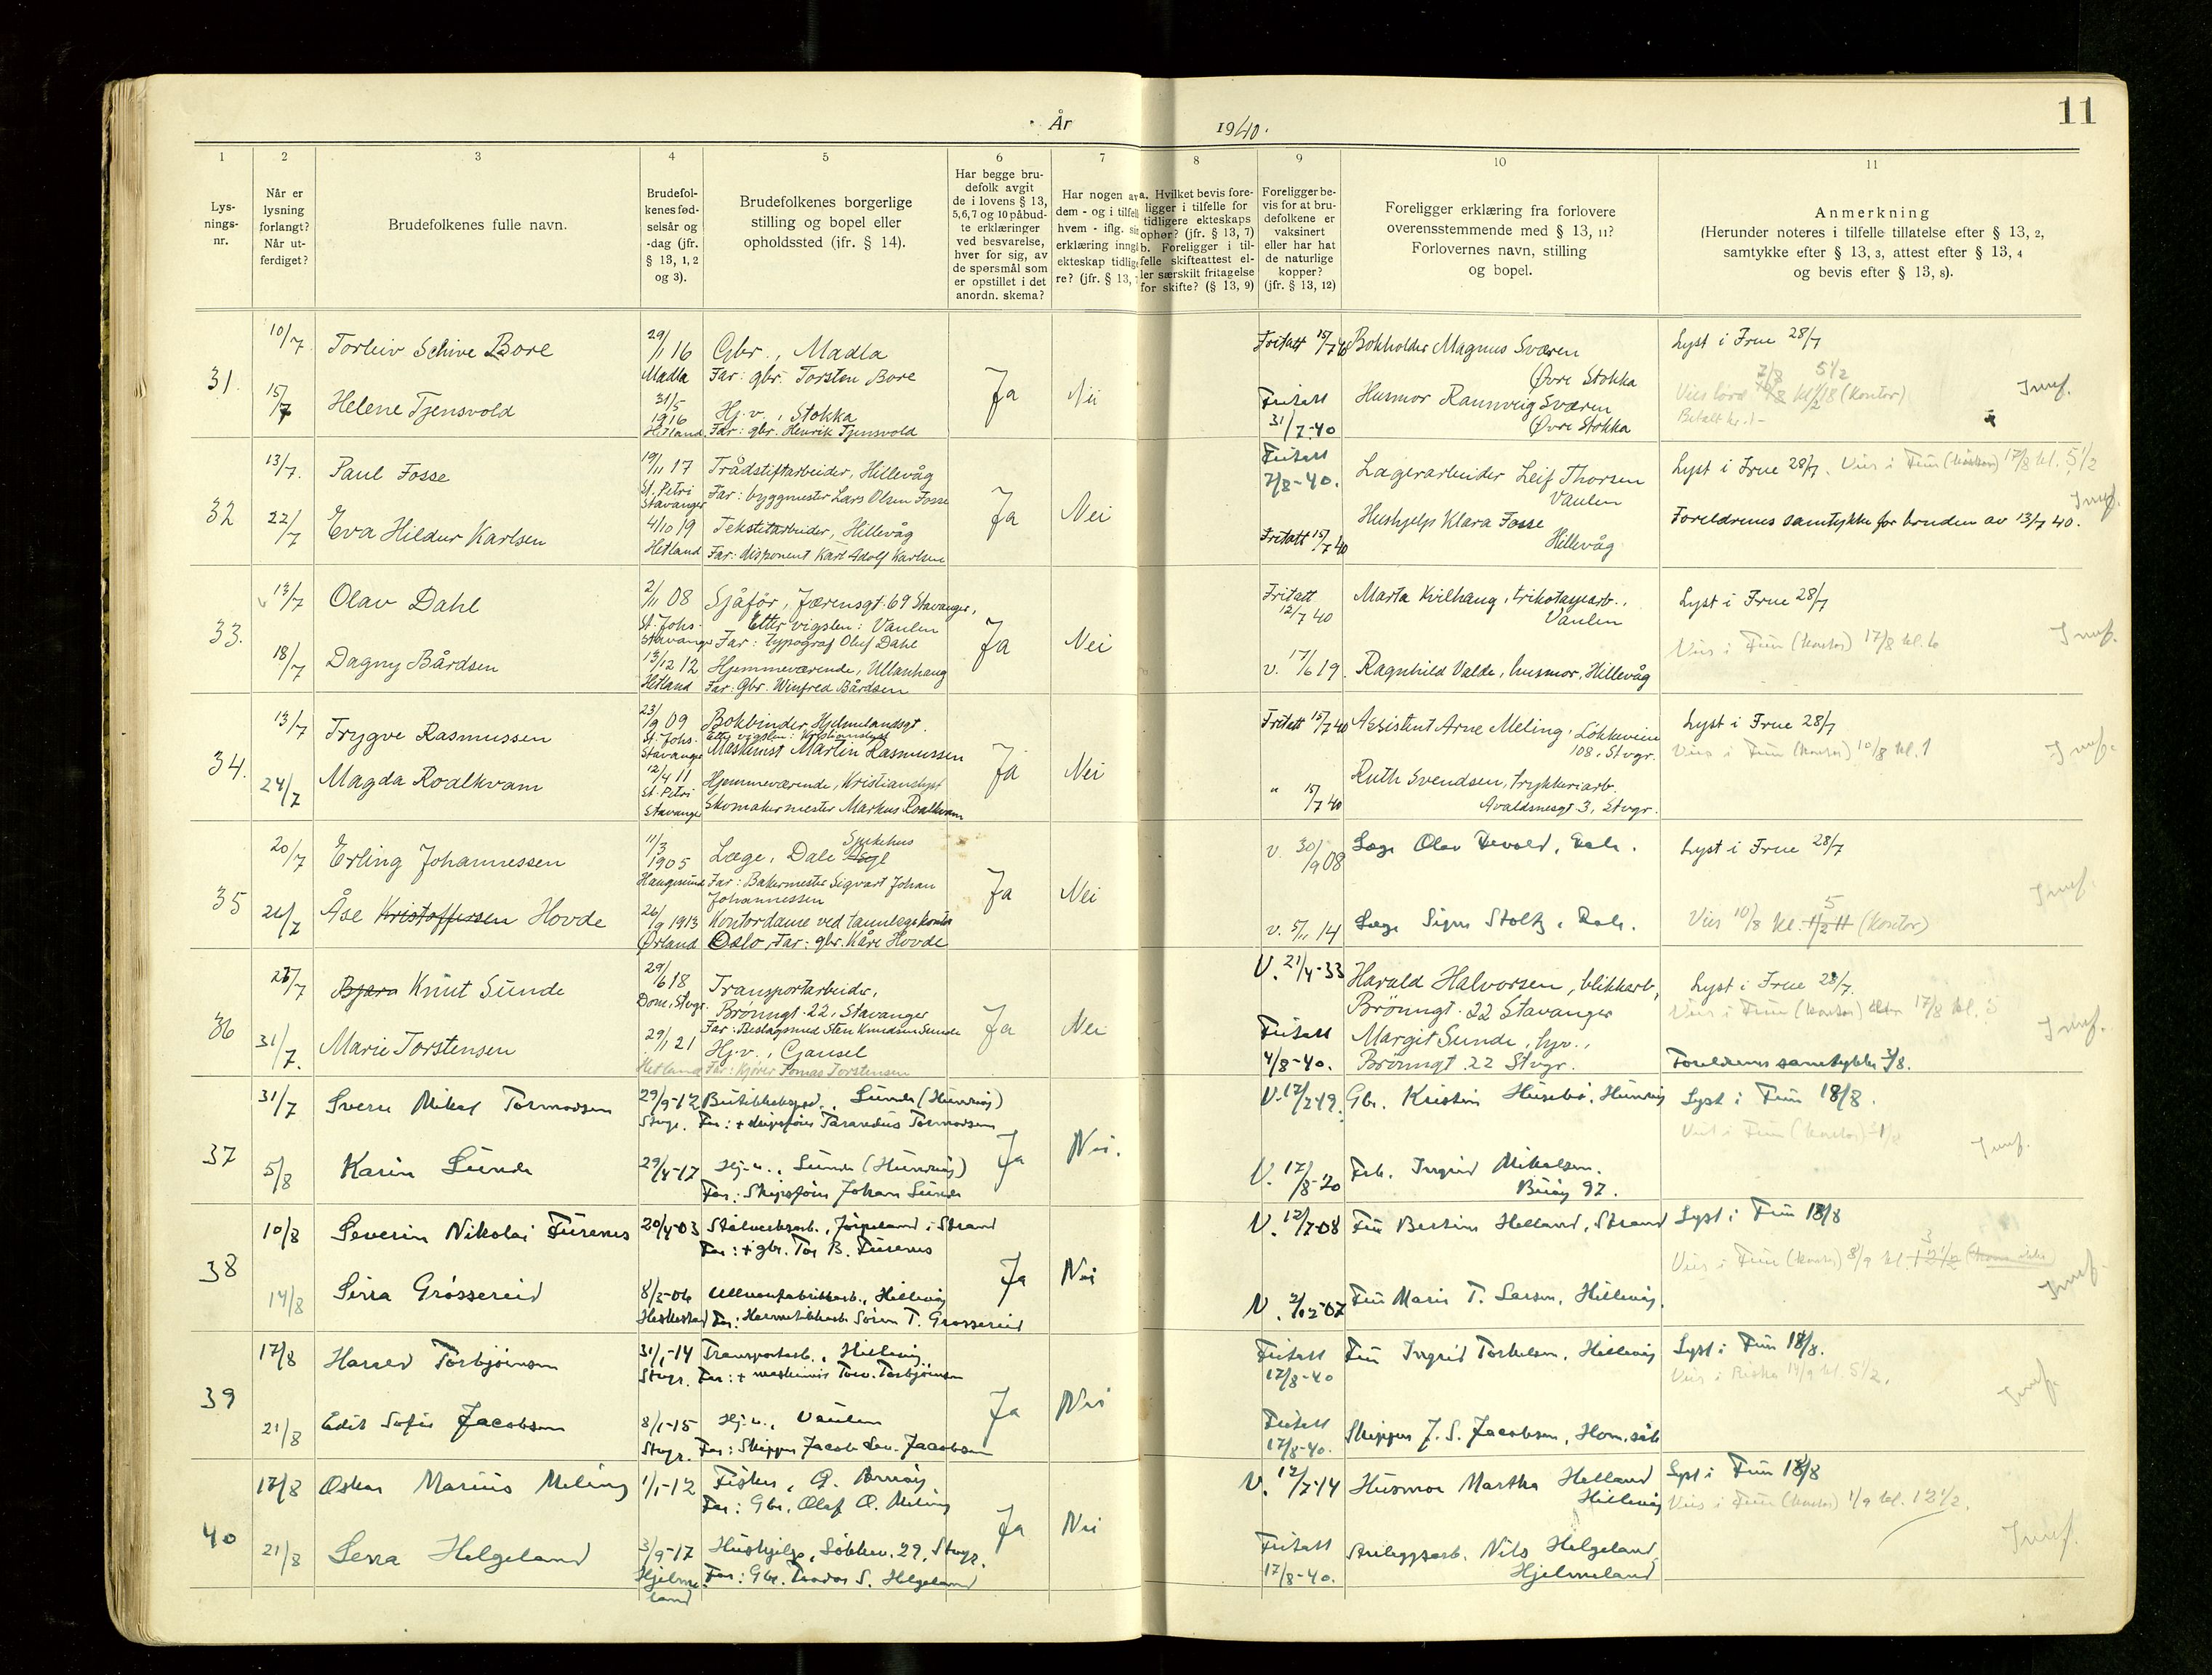 År 1940.
11
1 2 3 4 5 6 7 8 9 10 11
Lys-
nings-
nr.
Når er
lysning
forlangt?
Når ut-
ferdiget?
Brudefolkenes fulle navn.
Brudefol-
kenes fød-
selsår og
-dag (jfr.
§ 13, 1, 2
og 3).
Brudefolkenes borgerlige
stilling og bopel eller
opholdssted (jfr. § 14).
Har begge bru-
defolk avgit
de i lovens § 13,
5, 6, 7 og 10 påbud-
te erklæringer
ved besvarelse,
hver for sig, av
de spørsmål som
er opstillet i det
anordn. skema?
Har nogen av
dem - og i tilfell
hvem - iflg. sin
erklæring inngå
ekteskap tidlige
re? (jfr. § 13,
a. Hvilket bevis fore-
ligger i tilfelle for
tidligere ekteskaps
ophør? (jfr. § 13, 7)
b. Foreligger i til-
felle skifteattest el-
ler særskilt fritagelse
for skifte? (§ 13, 9)
Foreligger be-
vis for at bru-
defolkene er
vaksinert
eller har hat
de naturlige
kopper?
(jfr. § 13, 12)
Foreligger erklæring fra forlovere
overensstemmende med § 13, 11?
Forlovernes navn, stilling
og bopel.
Anmerkning
(Herunder noteres i tilfelle tillatelse efter § 13, 2,
samtykke efter § 13, 3, attest efter § 13, 4
og bevis efter § 13, 8).
31.
10/7
15/7
Torleiv Schive Bore
Helene Tjensvold
29/11 16
Madla
31/5
1916
Hetland
Gbr., Madla
Far: gbr. Torsten Bore
Hj.v., Stokka
Far: gbr. Henrik Tjensvold
Ja
Nei
Fritatt 15/7 40
Fritatt
31/7-40
Bokholder Magnus Sværen
Øvre Stokka
Husmor Rannveig Sværen
Øvre Stokka
Lyst i Frue 28/7
32
13/7.
22/7
Paul Fosse
Eva Hildur Karlsen
19/11 17
St. Petri
Stavanger
4/10 19
Hetland
Trådstiftarbeider, Hillevåg
Far: byggmester Lars Olsen Fosse
Tekstilarbeider, Hillevåg
Far: disponent Karl Adolf Karlsen
Ja
Nei
Fritatt
7/8-40.
Fritatt 15/7 40
Lagerarbeider Leif Thorsen
Vaulen
Hushjelp Klara Fosse
Hillevåg
Lyst i Frue 28/7. Vies i Frue (kontor) 17/8 kl. 5 1/2
Foreldrenes samtykke for bruden av 13/7 40.
33.
13/7
18/7
Olav Dahl
Dagny Bårdsen
2/11 08
St. Johs.
Stavanger
13/12 12
Hetland
Sjåfør, Jærensgt. 69 Stavanger,
Etter vigslen: Vaulen
Far: typograf Oluf Dahl
Hjemmeværende, Ullanhaug
Far: Gbr. Winfred Bårdsen
Ja
Nei
Fritatt
12/7 40
v. 17/6 19.
Marta Kvilhaug, trikotagearb.,
Vaulen
Ragnhild Valde, husmor, Hillevåg
Lyst i Frue 28/7
Vies i Frue (kontor) 17/8 kl. 6
34.
13/7
24/7
Trygve Rasmussen
Magda Roalkvam
23/9 09
St. Johs.
Stavanger
12/4 11
St. Petri
Stavanger
Bokbinder, Hjelmelandsgt.
Etter vigslen: Kristianslyst
Maskinist Martin Rasmussen
Hjemmeværende, Kristianslyst
Skomakermester Markus Roalkvam
Ja
Nei
Fritatt 15/7 40
" 15/7 40
Assistent Arne Meling, Løkkeveien
108, Stvgr.
Ruth Svendsen, trykkeriarb.
Avaldsnesgt 3, Stvgr.
Lyst i Frue 28/7
Vies i Frue (kontor) 10/8 kl. 1
35
20/7
Erling Johannessen
Åse Kristoffersen Hovde
11/3
1905
Haugesund
26/9 1913
Ørland
Læge, Dale Sykehus
Far: Bakermester Sigvart Johan
Johannessen
Kontordame ved tannlegekontor
Oslo, Far: gbr. Kåre Hovde
Ja
Nei
v. 30/9 08
v. 5/11 14
Læge Olav Devold, Dale.
Læge Signe Stoltz, Dale.
Lyst i Frue 28/7
Vies 10/8 kl. 5 (kontor)
36
26/7
31/7.
Knut Sunde
Marie Torstensen
29/6 18
Dom. Stvgr.
29/1 21
Hetland
Transportarbeider,
Brønngt. 22, Stavanger
Far: Beslagsmed Sten Knudsen Sunde
Hj.v., Gausel
Far: kjører Tomas Torstensen
Ja
Nei
V. 21/4-33
Fritatt
4/8-40.
Harald Halvorsen, blikkarb,
Brönngt. 22 Stavanger
Margit Sunde, hjv.,
Brönngt. 22 Stvgr.
Lyst i Frue 28/7.
Foreldrenes samtykke 3/8.
37
31/7
5/8
Sverre Mikal Tormodsen
Karin Sunde
29/9-12
Stvgr.
29/4-17
Butikkeksped., Sunde (Hundvåg)
Far: + skipsfører Tarandius Tormodsen
Hj.v., Sunde (Hundvåg)
Far: Skipsfører Johan Sunde
Ja
Nei.
V. 17/8-20
Gbr. Kristin Husebø, Hundvåg
Frk. Ingrid Mikalsen.
Buøy 97.
Lyst i Frue 18/8.
38
10/8
14/8
Severin Nikolai Furenes
Sirra Grössereid
20/4-03
8/3-06
Heskestad
Stålverksarb., Jörpeland i Strand
Far: + gbr. Tor B. Furenes
Ullvarefabrikkarb., Hillevåg
Far: Hermetikkarb. Sören T. Grössereid
Ja
Nei
V. 12/7-08
V. 2/12-07
Fru Bertine Helland, Strand
Fru Marie T. Larsen, Hillevåg.
Lyst i Frue 18/8
39
17/8
21/8
Harald Torbjörnsen
Edit Sofie Jacobsen
31/1-14
Stvgr.
8/1-15
Stvgr.
Transportarb., Hillevåg
Far: + maskinist Torv. Torbjörnsen
Hj.v., Vaulen
Far: Skipper Jacob Sev. Jacobsen
Ja
Nei
Fritatt
17/8-40
Fritatt
17/8-40.
Fru Ingrid Torkelsen, Hillevåg
Skipper J. S. Jacobsen, Hommersåk
Lyst i Frue 18/8.
Vies i Riska 14/9 kl. 5 1/2.
40
17/8
21/8
Oskar Marius Meling
Lerra Helgeland
1/1-12
3/9-17
Hjelme-
land
Fisker,
Far: Gbr. Olaf O. Meling
Hushjelp, Løkkev. 29, Stvgr.
Far: Gbr. Teodor S. Helgeland
Ja
Nei
V. 12/7-14
Fritatt
17/8-40.
Husmor Martha Helland
Hillevåg
Nils Helgeland
Hjelmeland
Lyst i Frue 18/8
Vies i Frue (kontor) 1/9 kl. 12 1/2.